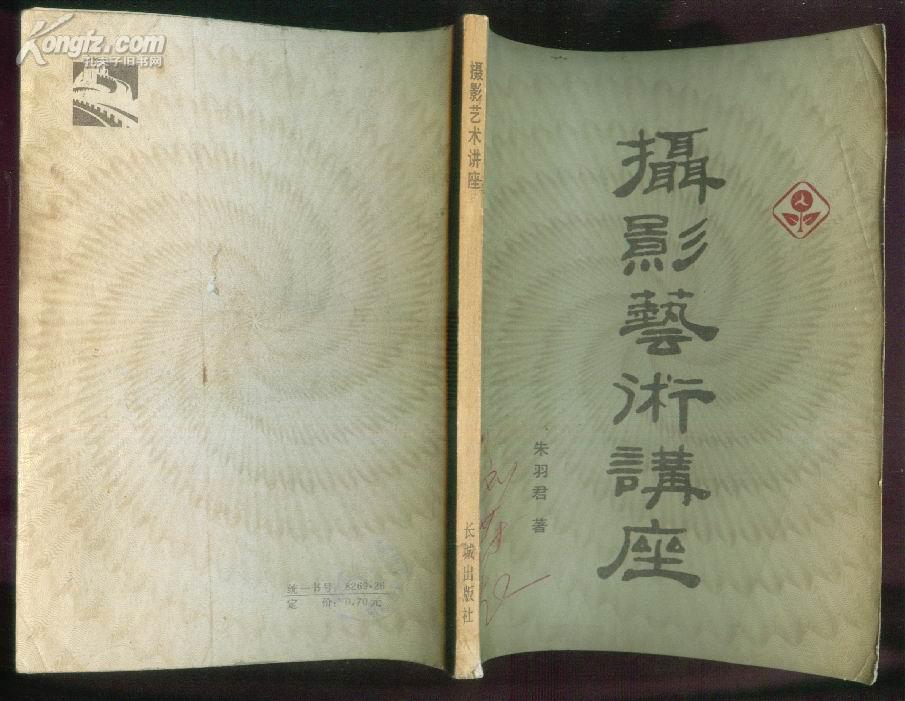 Kongfz.com
孔夫子旧书网
攝影藝術講座
朱羽君 著
摄影艺术讲座
长城出版社
统一书号 8269·26
定 价：0.70元